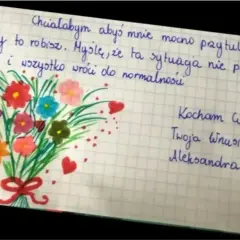 Chciałabym abyś mnie mocno przytul
to robisz. Myślę, że ta sytuacja nie p
i wszystko wróci do normalności
Kocham
Twoja Wnus
Aleksandra